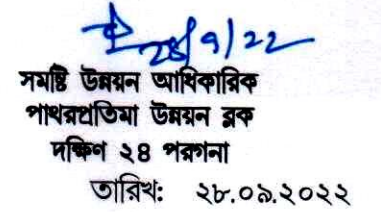 28/9/22
সমষ্টি উন্নয়ন আধিকারিক
পাথরপ্রতিমা উন্নয়ন ব্লক
দক্ষিণ ২৪ পরগনা
তারিখ: ২৮.০৯.২০২২